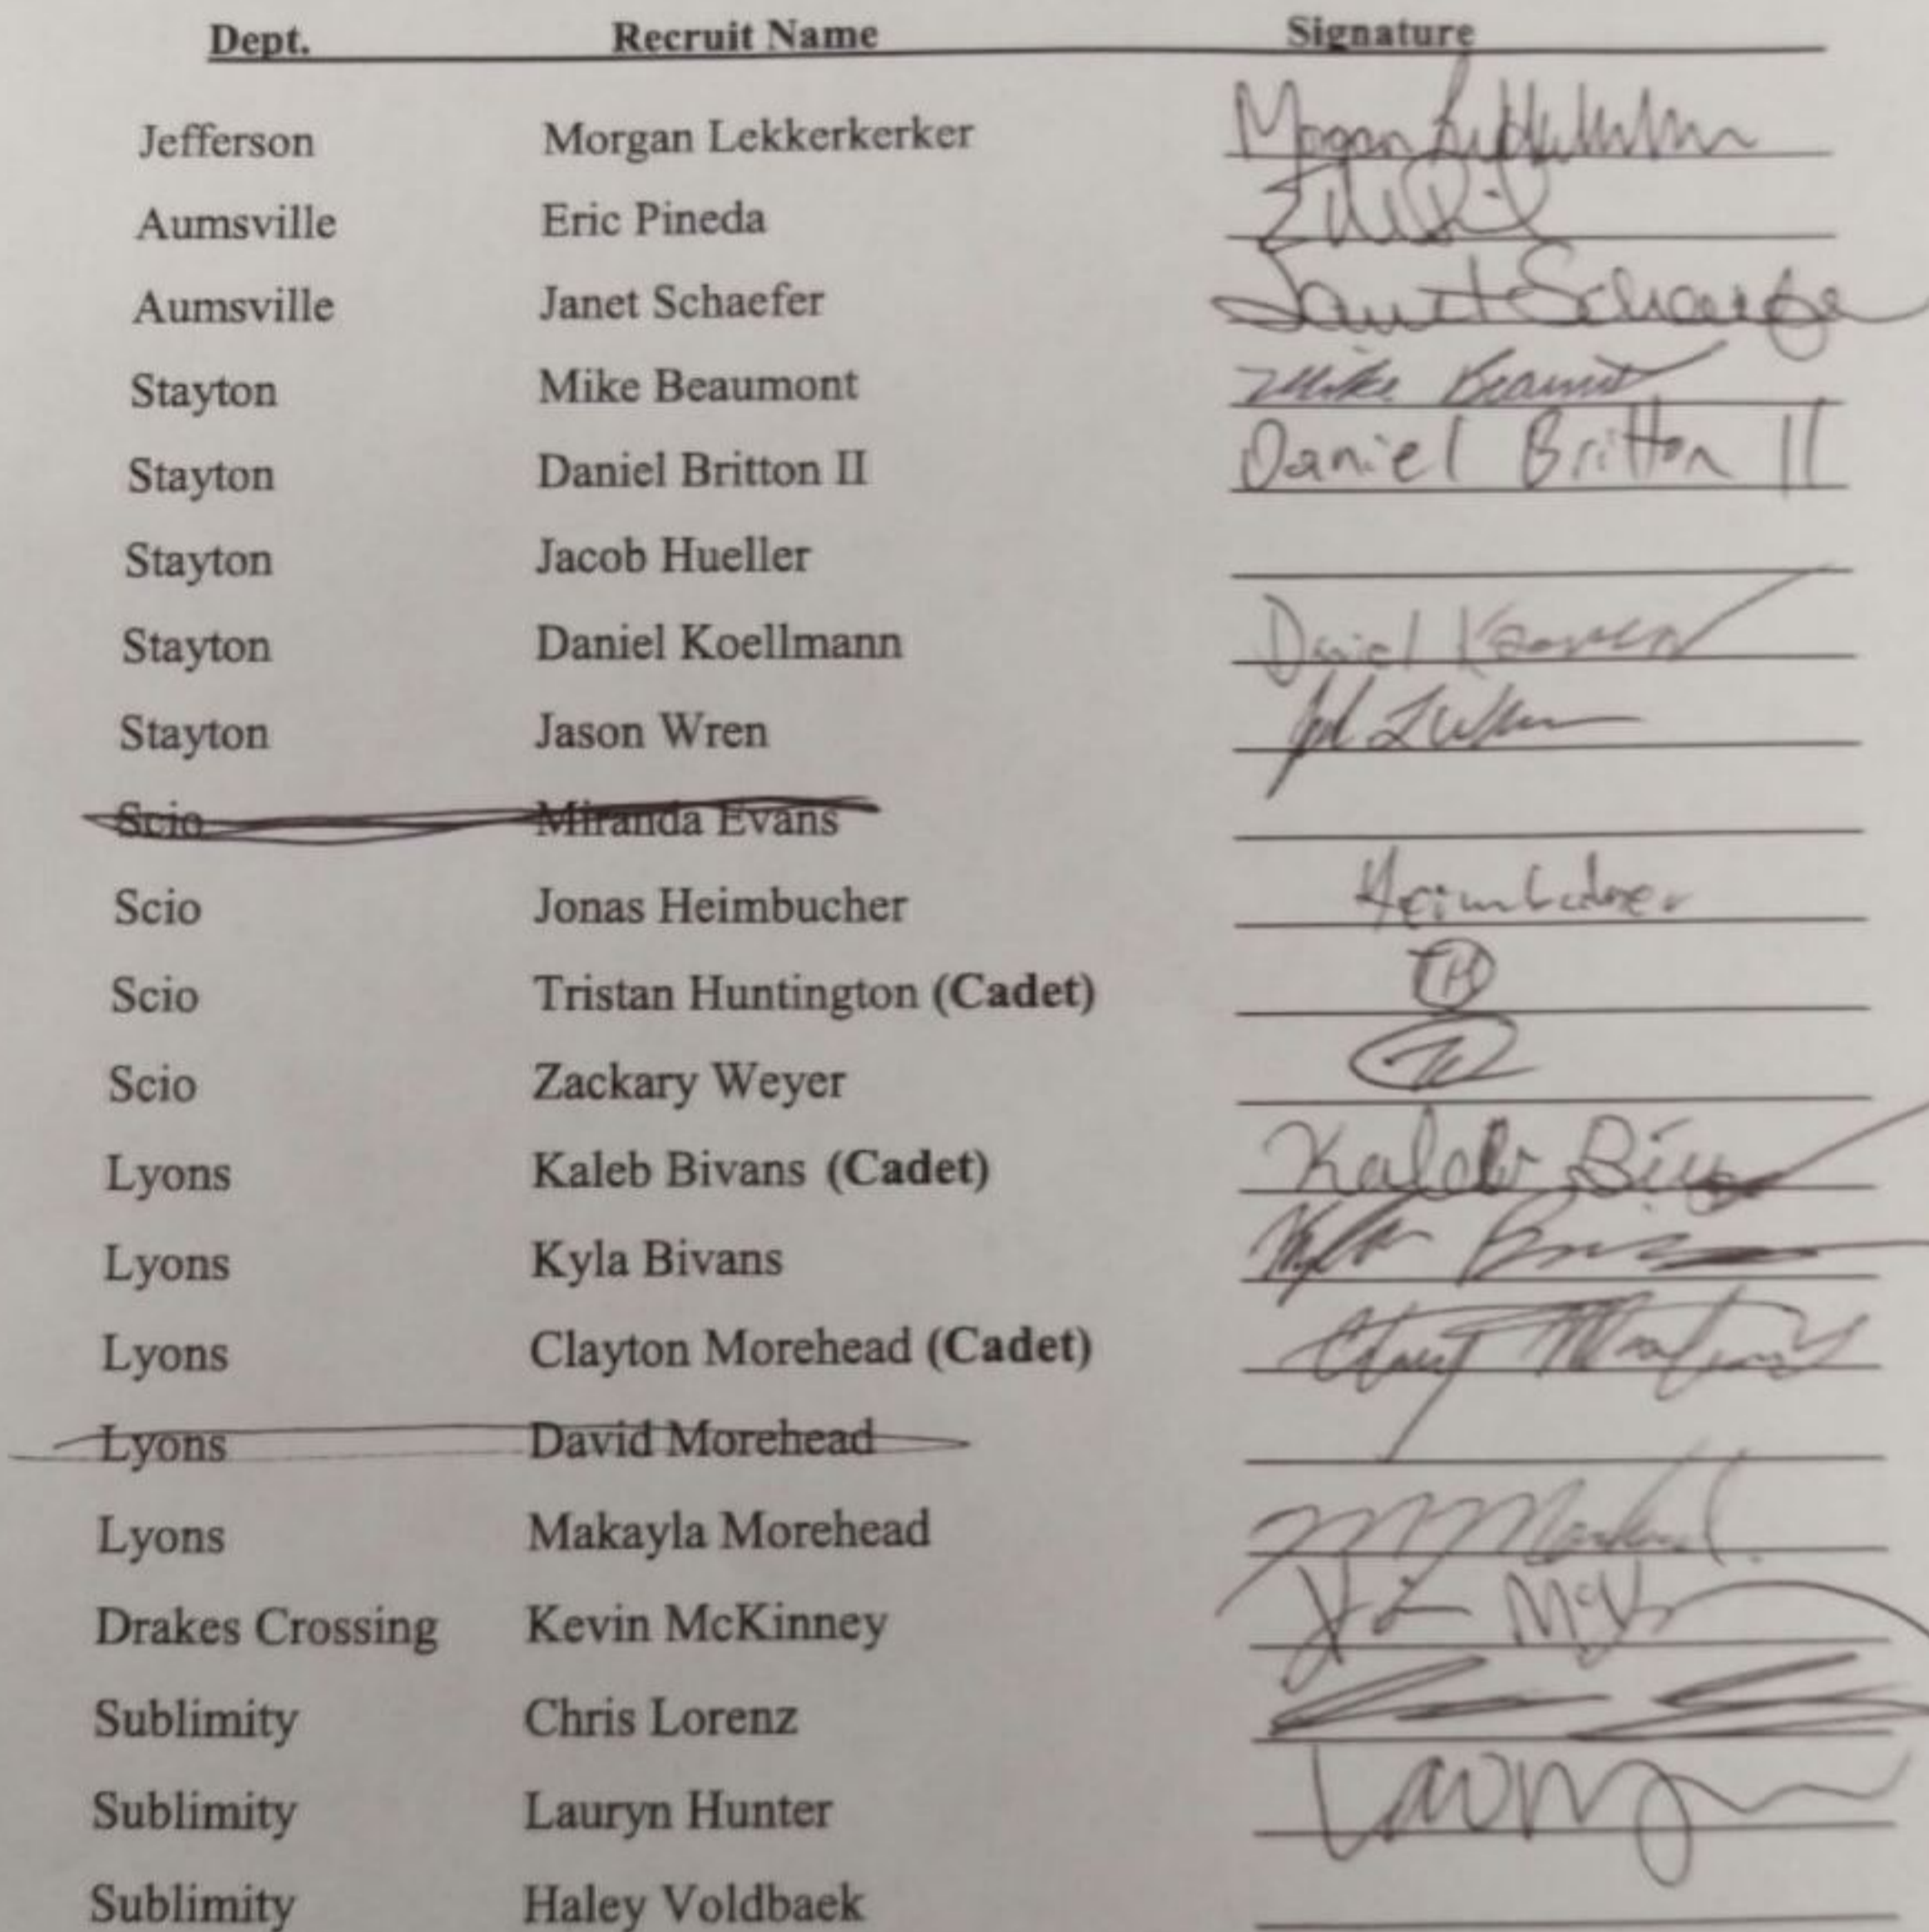 Dept. Recruit Name Signature
Jefferson Morgan Lekkerkerker Morgan
Aumsville Eric Pineda
Aumsville Janet Schaefer Janet Schaefer
Stayton Mike Beaumont Mike Beaumont
Stayton Daniel Britton II Daniel Britton II
Stayton Jacob Hueller
Stayton Daniel Koellmann Daniel
Stayton Jason Wren
Scio Miranda Evans
Scio Jonas Heimbucher Heimbucher
Scio Tristan Huntington (Cadet) TH
Scio Zackary Weyer
Lyons Kaleb Bivans (Cadet) Kaleb
Lyons Kyla Bivans Kyla
Lyons Clayton Morehead (Cadet)
Lyons David Morehead
Lyons Makayla Morehead
Drakes Crossing Kevin McKinney
Sublimity Chris Lorenz
Sublimity Lauryn Hunter
Sublimity Haley Voldbaek